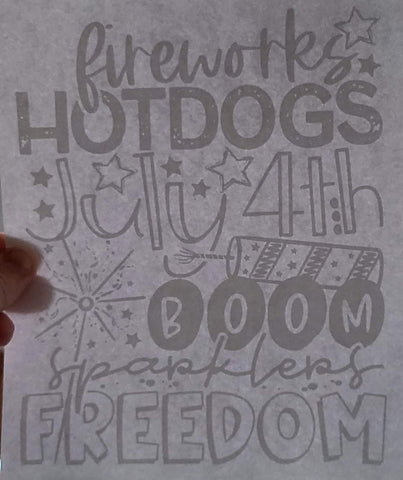 fireworks
HOTDOGS
July 4th
BOOM
sparklers
FREEDOM